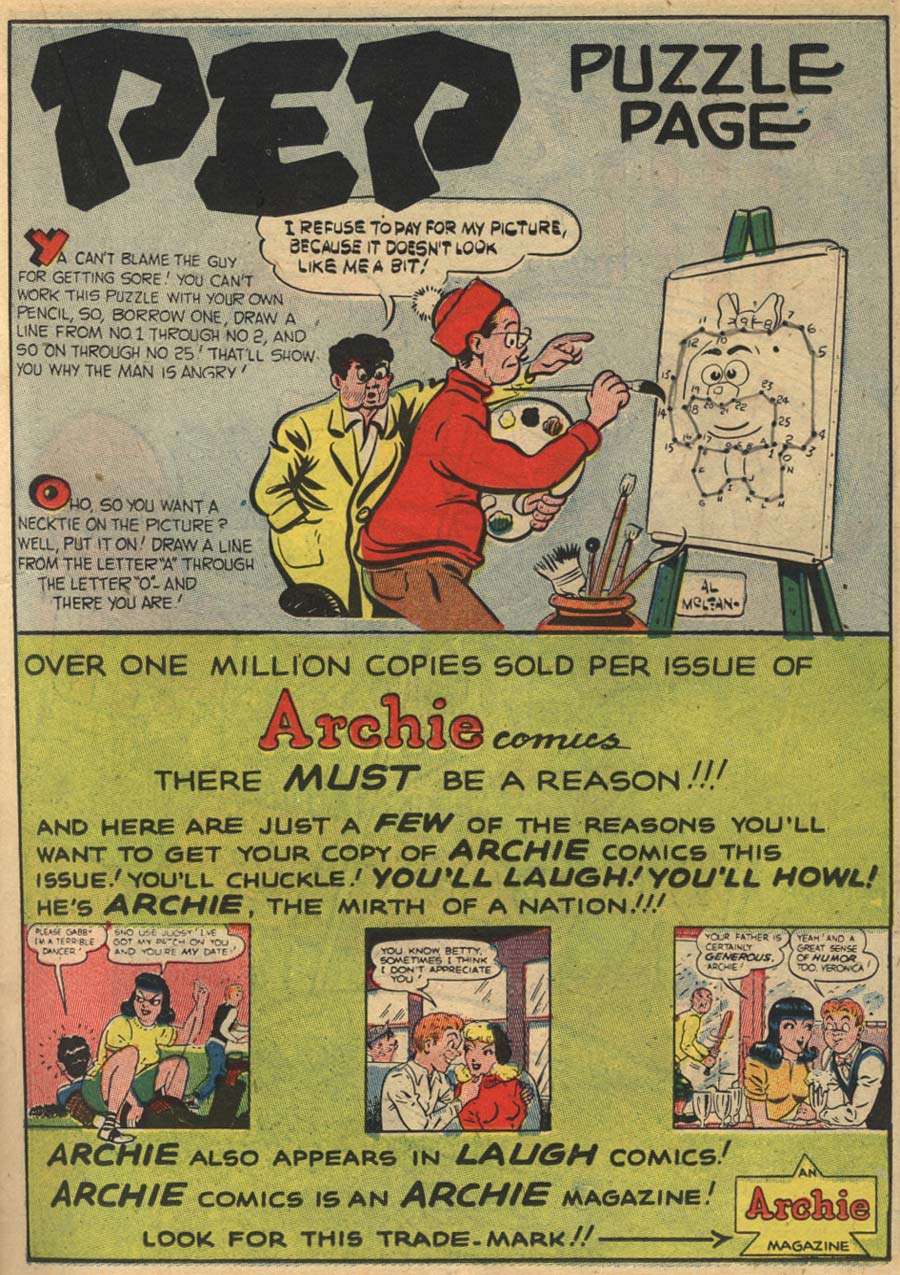 PEP
PUZZLE
PAGE
I REFUSE TO PAY FOR MY PICTURE,
BECAUSE IT DOESN'T LOOK
LIKE ME A BIT!
YA CAN'T BLAME THE GUY
FOR GETTING SORE! YOU CAN'T
WORK THIS PUZZLE WITH YOUR OWN
PENCIL, SO, BORROW ONE, DRAW A
LINE FROM NO. 1 THROUGH NO 2, AND
SO ON THROUGH NO 25! THAT'LL SHOW
YOU WHY THE MAN IS ANGRY!
OHO, SO YOU WANT A
NECKTIE ON THE PICTURE?
WELL, PUT IT ON! DRAW A LINE
FROM THE LETTER "A" THROUGH
THE LETTER "O"- AND
THERE YOU ARE!
AL
McLEAN-
OVER ONE MILLION COPIES SOLD PER ISSUE OF
Archie comics
THERE MUST BE A REASON!!!
AND HERE ARE JUST A FEW OF THE REASONS YOU'LL
WANT TO GET YOUR COPY OF ARCHIE COMICS THIS
ISSUE! YOU'LL CHUCKLE! YOU'LL LAUGH! YOU'LL HOWL!
HE'S ARCHIE, THE MIRTH OF A NATION!!!
PLEASE GABBY
I'M A TERRIBLE
DANCER!
SNO USE JUGSY! I'VE
GOT MY PATCH ON YOU
AND YOU'RE MY DATE!
YOU KNOW BETTY,
SOMETIMES I THINK
I DON'T APPRECIATE
YOU!
YOUR FATHER IS
CERTAINLY
GENEROUS,
ARCHIE!
YEAH! AND A
GREAT SENSE
OF HUMOR,
TOO, VERONICA!
ARCHIE ALSO APPEARS IN LAUGH COMICS!
ARCHIE COMICS IS AN ARCHIE MAGAZINE!
LOOK FOR THIS TRADE-MARK!!
AN
Archie
MAGAZINE